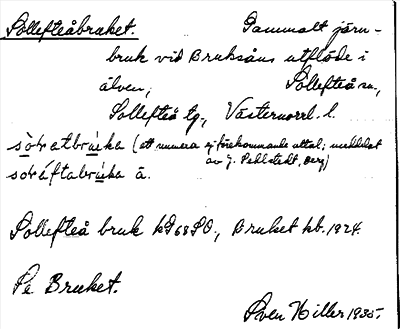 Sollefteåbruket. Gammalt järn-
bruk vid Bruksåns utflöde i
älven, Sollefteå sn,
Sollefteå tg., Västernorrl. l.
(ett numera ej förekommande uttal; meddelat
av J. Pehlstedt, Berg)
å.
Sollefteå bruk kb., Bruket kb. 1924.
På Bruket.
Sven Hiller 1935.